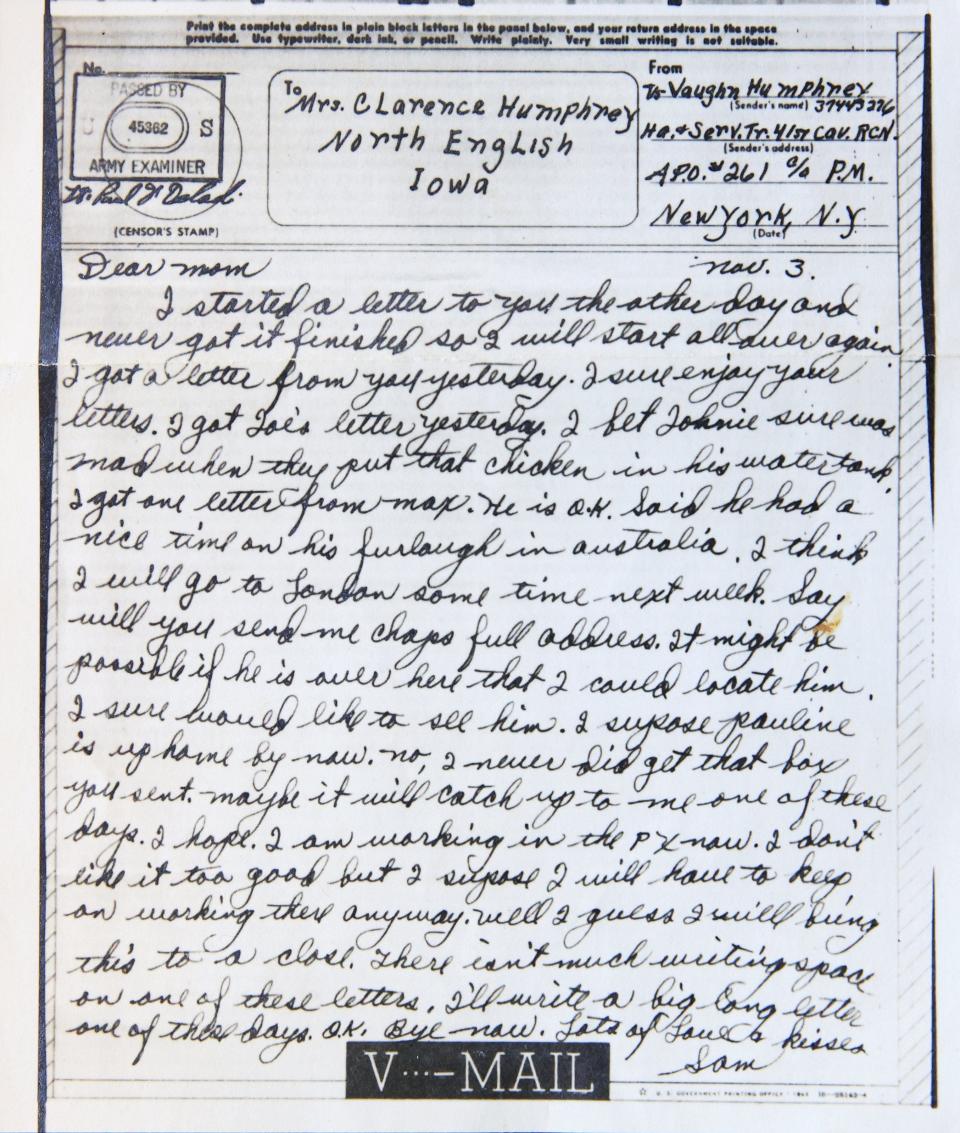 Print the complete address in plain block letters in the panel below, and your return address in the space
provided. Use typewriter, dark ink, or pencil. Write plainly. Very small writing is not suitable.
No.
PASSED BY
U 45362 S
ARMY EXAMINER
(CENSOR'S STAMP)
To
Mrs. Clarence Humphrey
North English
Iowa
From
T/5 Vaughn Humphrey
(Sender's name)
Hq. & Serv. Tr. 41st Cav. RCN.
(Sender's address)
A.P.O. # 261 c/o P.M.
New York, N.Y.
(Date)
Dear mom nov. 3.
I started a letter to you the other day and
never got it finished so I will start all over again
I got a letter from you yesterday. I sure enjoy your
letters. I got Zoe's letter yesterday. I bet Johnie sure was
mad when they put that chicken in his watertank.
I got one letter from max. He is O.K. Said he had a
nice time on his furlaugh in australia. I think
I will go to London some time next week. Say
will you send me chaps full address. It might be
possible if he is over here that I could locate him.
I sure would like to see him. I supose pauline
is up home by now. no, I never did get that box
you sent. maybe it will catch up to me one of these
days. I hope. I am working in the PX now. I don't
like it too good but I supose I will have to keep
on working there anyway. well I guess I will bring
this to a close. There isn't much writing space
on one of these letters. I'll write a big long letter
one of these days. O.K. Bye now. Lots of Love & kisses
Sam
V···–MAIL
U. S. GOVERNMENT PRINTING OFFICE : 1943